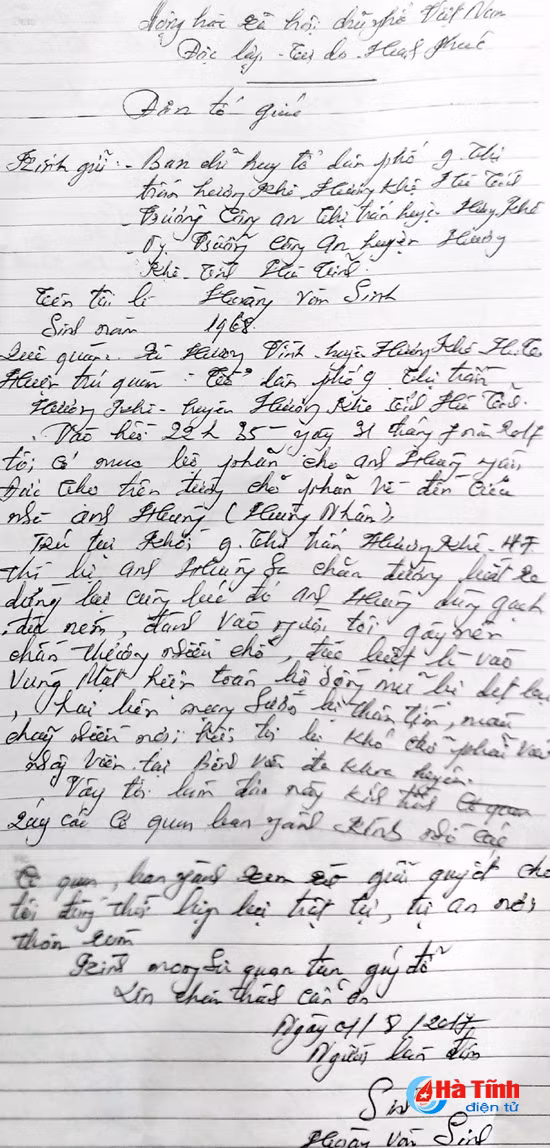 Cộng hòa xã hội chủ nghĩa Việt Nam
Độc lập - Tự do - Hạnh phúc
Đơn tố giác
Kính gửi: - Ban chỉ huy tổ dân phố 9 Thị
trấn Hương Khê Hương Khê Hà Tĩnh
Trưởng Công an thị trấn huyện Hương Khê
Trưởng Công an huyện Hương
Khê - Tỉnh Hà Tĩnh.
Tên tôi là Hoàng Văn Sinh
Sinh năm 1968
Quê quán: Xã Hương Vĩnh - huyện Hương Khê - H. Tĩnh
Hiện trú quán: Tổ dân phố 9 Thị trấn
Hương Khê - huyện Hương Khê tỉnh Hà Tĩnh.
Vào hồi 22h 35 - ngày 31 tháng 7 năm 2017
tôi có mua bò phần cho anh Hùng
Đức Thọ trên đường chở phần về đến cửa
nhà anh Hùng (Hùng Nhân)
Trú tại Khối 9 thị trấn Hương Khê - HT
thì bị anh Hùng ra chặn đường bắt xe
dừng lại cùng lúc đó anh Hùng dùng gạch
đá ném, đánh vào người tôi gây nên
chấn thương nhiều chỗ, đặc biệt là vào
vùng mặt hiện toàn bộ sống mũi bị dẹt
, hai bên mạng sườn bị thâm tím, máu
chảy nhiều nơi, tôi bị khó thở phải vào
viện tại Bệnh viện đa khoa huyện.
Vậy tôi làm đơn này kính
Quý các cơ quan ban ngành kính nhờ các
cơ quan, ban ngành xem xét giải quyết cho
tôi đồng thời lập lại trật tự, trị an nơi
thôn xóm
Kính mong sự quan tâm giúp đỡ
Xin chân thành cảm ơn
Ngày 01/8/2017
Người làm đơn
Sinh
Hoàng Văn Sinh
Hà Tĩnh
điện tử